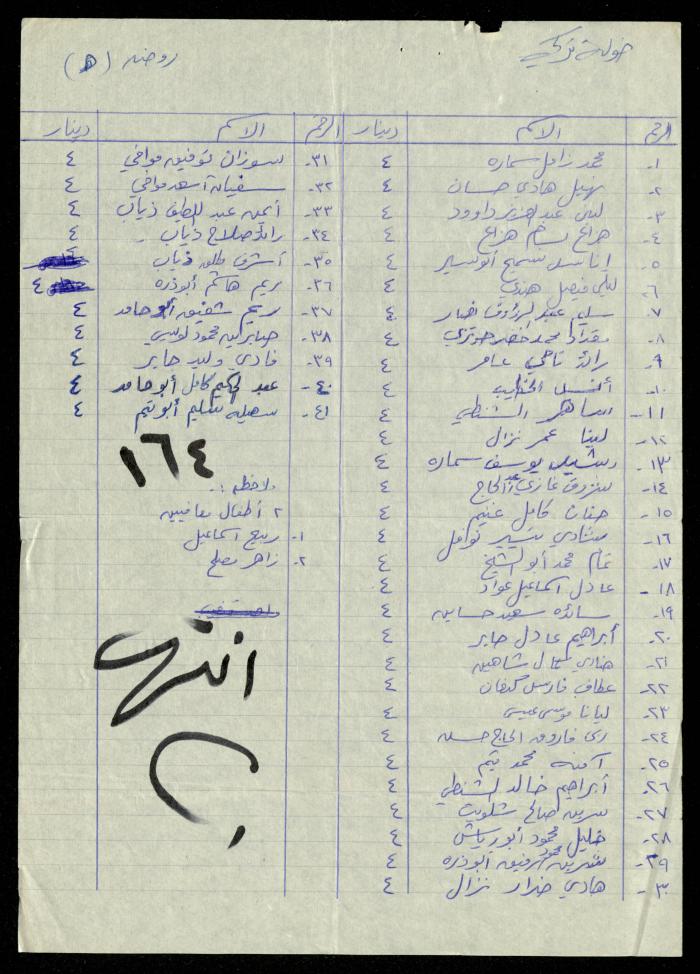 خولة تركي
روضه (هـ)
الرقم الاسم دينار
١- محمد زامل سماره ٤
٢- نهيل هادي حسان ٤
٣- لبنى عبد العزيز داوود ٤
٤- هزاع بسام هزاع ٤
٥- ايناس سميح أبو سير ٤
٦- ليلى فيصل هندي ٤
٧- سلمى عبد الرؤوف نصار ٤
٨- مقداد محمد خضر حوتري ٤
٩- رائد ناجي عامر ٤
١٠- أنس الخطيب ٤
١١- ساهر الشنطي ٤
١٢- لينا عمر نزال ٤
١٣- يوسف سماره ٤
١٤- غازي الحاج ٤
١٥- حنان كامل غنيم ٤
١٦- شادي تيسير نوفل ٤
١٧- تمام محمد أبو الشيخ ٤
١٨- عادل اسماعيل عواد ٤
١٩- سائده سعيد حساين ٤
٢٠- أبراهيم عادل جابر ٤
٢١- شاهين ٤
٢٢- عطاف فارس كنعان ٤
٢٣- ليانا موسى عيسى ٤
٢٤- ربى فاروق الحاج حسن ٤
٢٥- آمنه محمد تيم ٤
٢٦- أبراهيم خالد الشنطي ٤
٢٧- سرين صالح شلويت ٤
٢٨- خليل محمود أبو رياش ٤
٢٩- نسرين محمود رفيق أبوذره ٤
٣٠- هادي ضرار نزال ٤
الرقم الاسم دينار
٣١- سوزان توفيق موافي ٤
٣٢- سفيان أسعد موافي ٤
٣٣- أيمن عبد اللطيف ذياب ٤
٣٤- رائد صلاح ذياب ٤
٣٥- أشرف طلب ذياب
٣٦- ريم هاشم أبوذره ٤
٣٧- ريم شفيق أبو حامد ٤
٣٨- صابرين محمود لوسي ٤
٣٩- فادي وليد جابر ٤
٤٠- عبد الحكيم كامل أبو حامد ٤
٤١- سهيله سليم أبو تيم ٤
١٦٤
ملاحظه :-
٢ أطفال معافيين
١- ربيع اسماعيل
٢- زاهر مصلح
انتهى